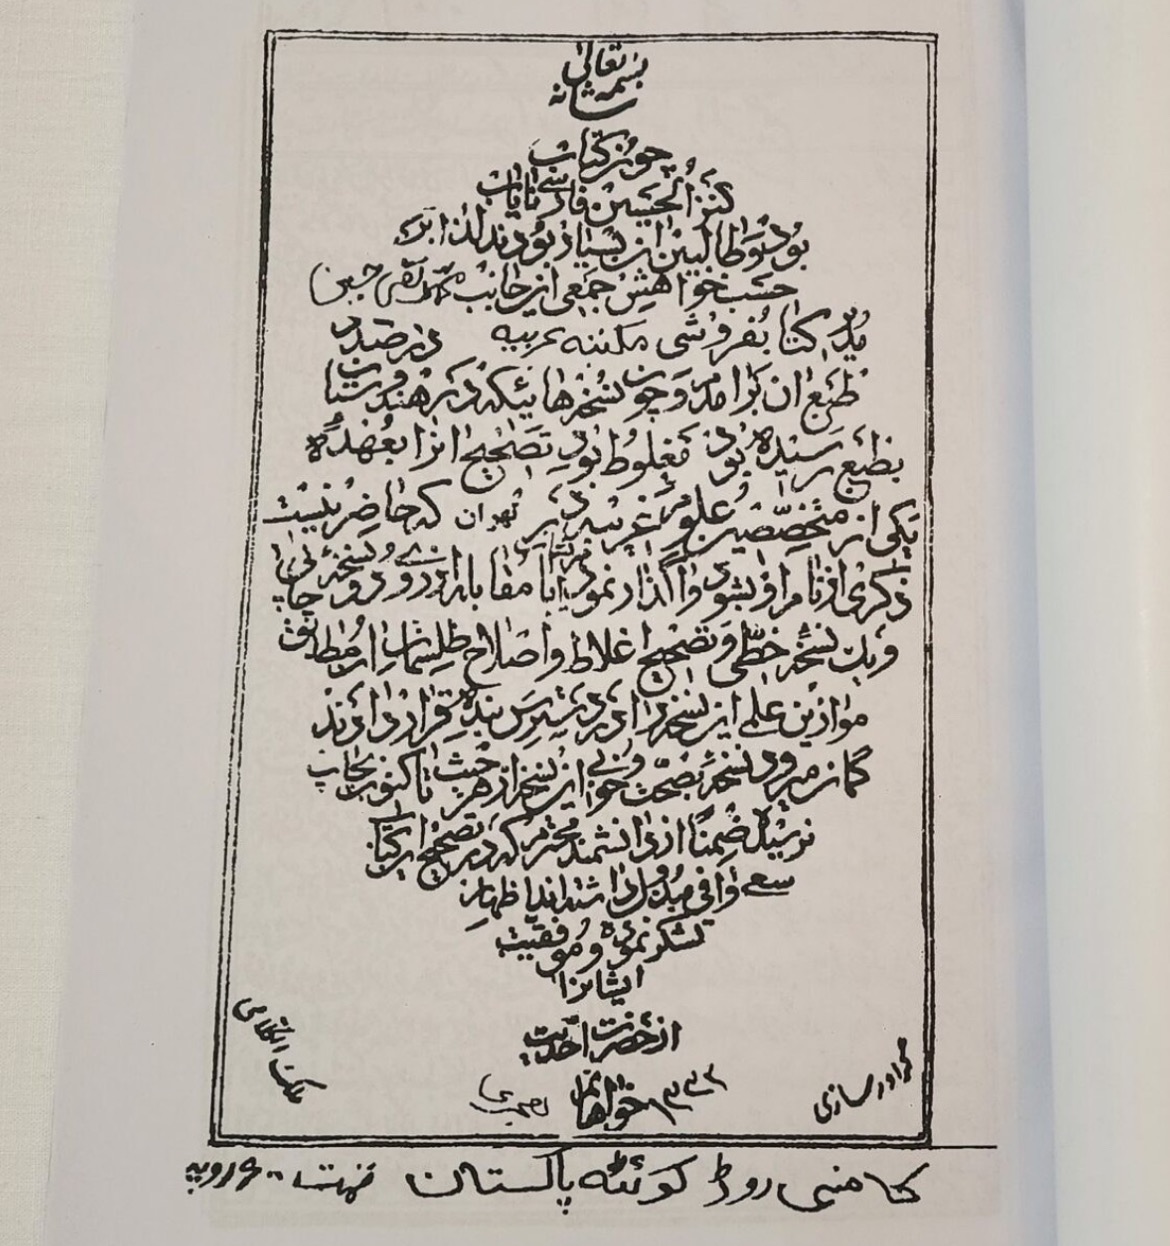 بسمه تعالی
شانه
چون کتاب
کنز الحسین فارسی نایاب
بود و طالبین ان بسیار بودند لذا
حسب خواهش جمعی از جانب محمد تقی حسین
مدیر کتابفروشی در صدد
طبع ان برامد و چون نسخه هائیکه در هندوستان
بطبع رسیده بود مغلوط بود تصحیح انرا بعهده
یکی از متخصصین علوم غریبه در تهران که حاضر نیست
ذکری از نام او بشود واگذار نمود با مقابله از روی دو نسخه چاپی
و یک نسخه خطی و تصحیح اغلاط و اصلاح طلسمات از مطابق
موازین علمی این نسخه را در دسترس بنده قرار دادند
گمان میرود نسخه بصحت و خوبی این نسخه از هر حیث تاکنون بچاپ
نرسیده ضمنا از دانشمند محترم که در تصحیح این کتاب
سعی وافی مبذول داشته اند اظهار
تشکر نموده و موفقیت
ایشانرا
از حضرت احدیت
خواهانم
کانسی روڈ کوئٹه پاکستان قیمت روپیه